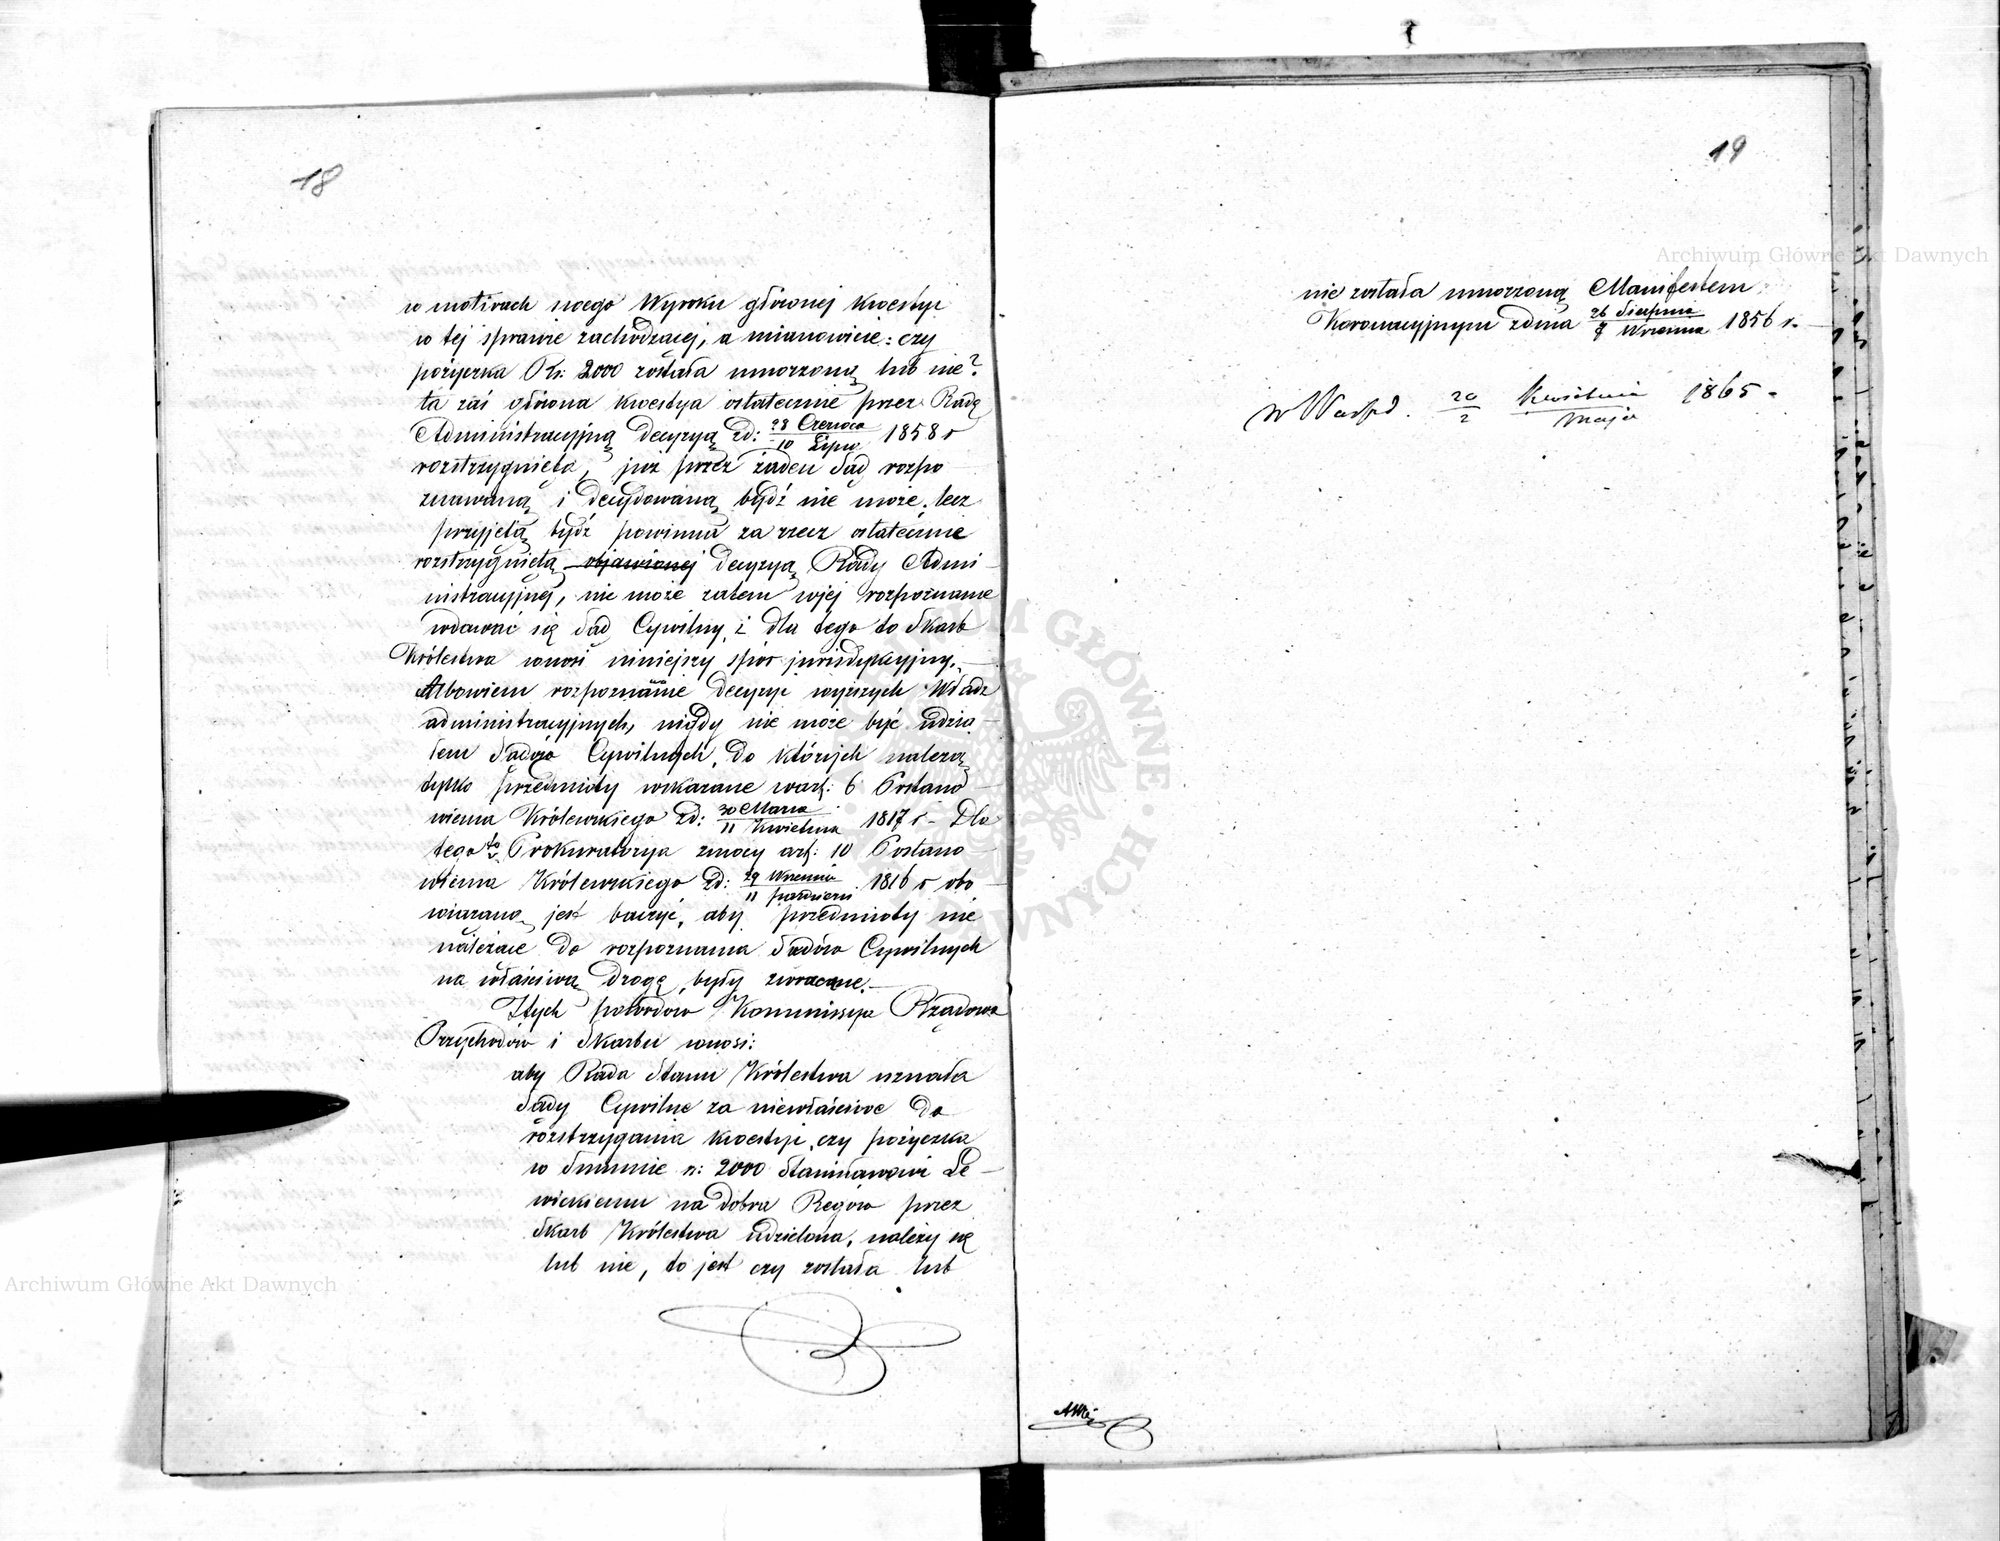 18
w motivach swego Wyroku głównej kwestyi
w tej sprawie zachodzącej, a mianowicie: czy
pożyczka Rs: 2000 została umorzoną lub nie?
ta zaś główna kwestya ostatecznie przez Radę
Administracyjną decyzyą zd: 28 Czerwca / 10 Lipca 1858 r
rozstrzygnięta, już przez żaden Sąd rozpo
znawaną i decydowaną bydź nie może, lecz
przyjętą bydź powinna za rzecz ostatecznie
rozstrzygniętą objawionej decyzyą Rady Admi-
nistracyjnej, nie może zatem wjej rozpoznanie
wdawać się Sąd Cywilny, i dla tego to Skarb
Królestwa wnosi niniejszy spór jurisdykcyjny.
Albowiem rozpoznanie decyzyi wyższych Władz
administracyjnych, nigdy nie może być udzia-
łem Sądów Cywilnych, do których należą
tylko przedmioty wskazane wart: 6 Postano-
wienia Królewskiego zd: 30 Marca / 11 Kwietnia 1817 r - Dla
tego to Prokuratorija zmocy art: 10 Postano-
wienia Królewskiego zd: 29 Wrzesnia / 11 pazdzierni 1816 r obo-
wiązaną jest baczyć, aby przedmioty nie
należące do rozpoznania Sądów Cywilnych
na właściwą drogę, były zwracane.-
Ztych powodów Kommissyja Rządowa
Przychodów i Skarbu wnosi:
aby Rada Stanu Królestwa uznała
Sądy Cywilne za niewłaściwe do
rozstrzygania kwestyi, czy pożyczka
w Summie rs: 2000 Stanisławowi Le-
wickiemu na dobra Regów przez
Skarb Królestwa udzielona, należy się
lub nie, to jest czy została lub
19
nie została umorzoną Manifestem
Koronacyjnym zdnia 26 Sierpnia / 7 Września 1856 r.
w Warsz. 20 / 2 Kwietnia / Maja 1865 -
Archiwum Główne Akt Dawnych
Archiwum Główne Akt Dawnych